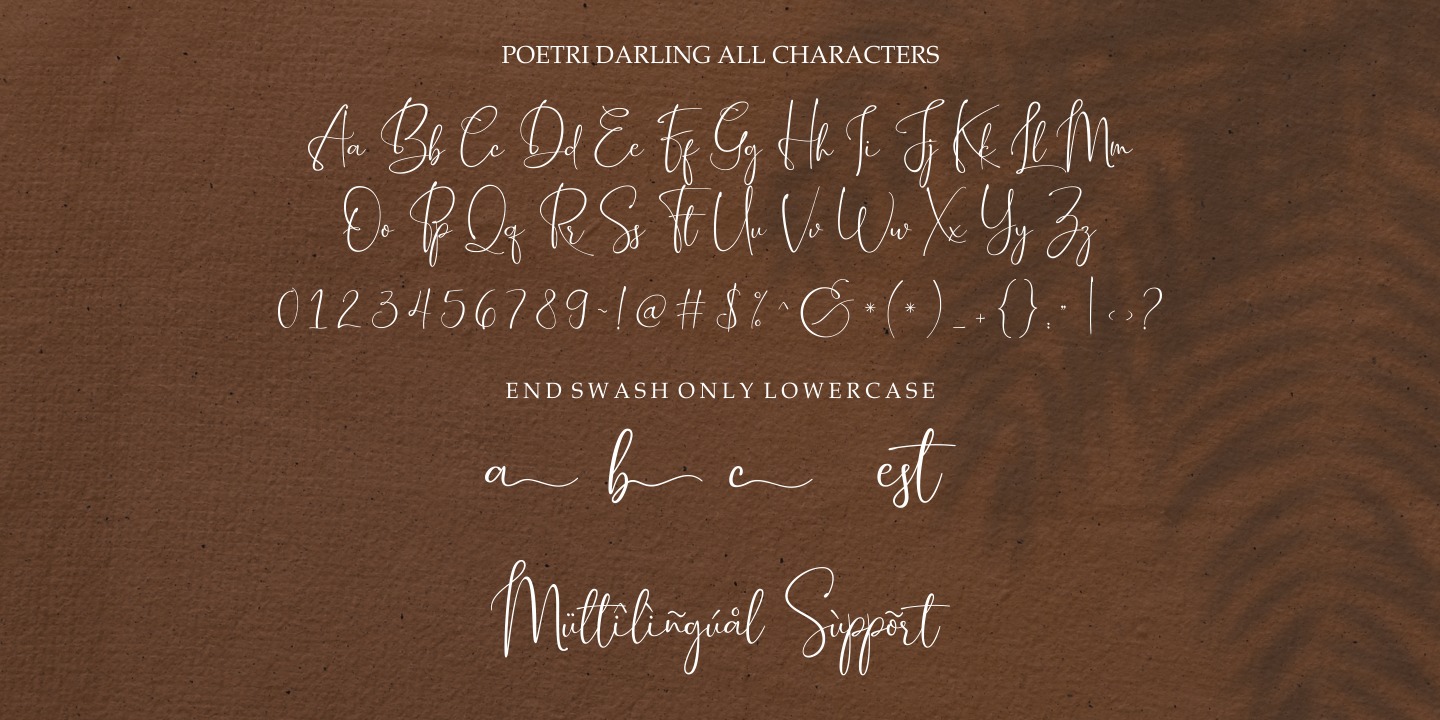 POETRI DARLING ALL CHARACTERS
Aa Bb Cc Dd Ee Ff Gg Hh Ii Jj Kk Ll Mm
Oo Pp Qq Rr Ss Tt Uu Vv Ww Xx Yy Zz
0 1 2 3 4 5 6 7 8 9 ~ ! @ # $ % ^ & * ( * ) _ + { } : " | < > ?
END SWASH ONLY LOWERCASE
a b c est
Mülttîlìñgúål Sùppõrt